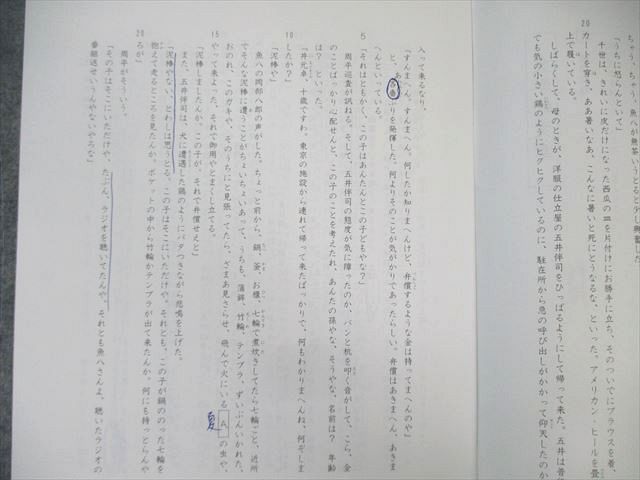 ちゃう、ちゃう
「うちに怒らんといて」
20
千世は、きれいに皮だけになった西瓜の皿を片付けにお勝手に立ち、そのついでにブラウスを着、
カートを穿き、ああ暑いなあ、こんなに暑いと死にとうなるな、といった。アメリカン・ヒールを畳
上で履いている。
しばらくして、母のときが、洋服の仕立屋の五井伴司をひっぱるようにして帰って来た。五井は普
でも気の小さい鶏のようにヒクヒクしているのに、駐在所から急の呼び出しがかかって仰天したのか
入って来るなり、
「すんまへん、すんまへん。何したか知りまへんけど、弁償するような金は持ってまへんのや」
りを発揮した。何よりそのことが気がかりであったらしい。弁償はあきまへん、あきま
へんといっている。
5
「それはともかく、この子はあんたんとこの子どもやな？」
周平巡査が訊ねる。そして、五井伴司の態度が気に障ったのか、バンと机を叩く音がして、こら、金
のことばっかり心配せんと、この子のことを考えたれ、あんたの孫やな、そうやな、名前は？　年齢
は？　といった。
「井元卓、十歳ですわ。東京の施設から連れて帰って来たばっかりで、何もわかりまへんね。何ぞしま
したか？」
10
「泥棒や」
魚八の岡部八郎の声がした。ちょっと前から、鍋、釜、お櫃、七輪で煮炊きしてたら七輪ごと、近所
でそんな泥棒に遭うことがちょいちょいあって、うちも、蒲鉾、竹輪、テンプラ、ずいぶんいかれた、
おのれ、このガキや、そのうちにと見張ってたら、ざまあ見さらせ、飛んで火にいる A の虫や、
夏
15
やって来よった、それで御用やとまくし立てる。
「泥棒しましたんか。この子が。それで弁償せえと」
また、五井伴司は、犬に遭遇した鶏のようにバタつきながら悲鳴を上げた。
「泥棒やない、とわしは思うとる。この子はそこにいただけや。それとも、この子が鍋ののった七輪を
抱えて走るところを見たんか。ポケットの中から竹輪かテンプラが出て来たんか。何にも持っとらんや
ろが」
20
周平がそういう。
「その子はそこにいただけや。たぶん、ラジオを聴いてたんや。それとも魚八さんよ、聴いたラジオの
番組返せいうんやないやろな」